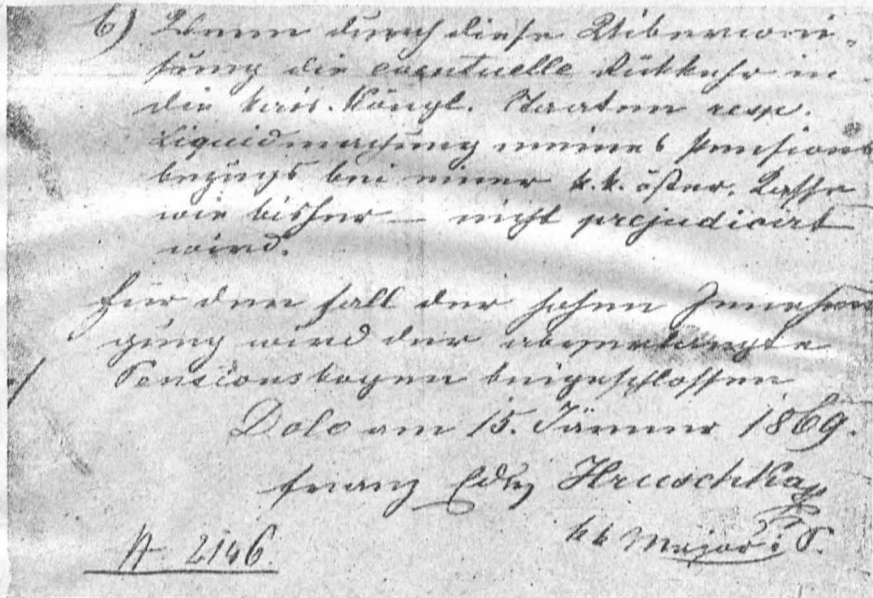 6) Wenn durch diese Überwei-
sung die eventuelle Rückkehr in
die kais. königl. Staaten resp.
Liquidmachung meines Pensions
bezugs bei einer k. k. öster. Kasse
wie bisher — nicht prejudicirt
wird.
Für den Fall der hohen Genehmi
gung wird der abverlangte
Pensionsbogen beigeschlossen
Dolo am 15. Jänner 1869.
Franz Hruschka
kk Major i. P.
A 2146.